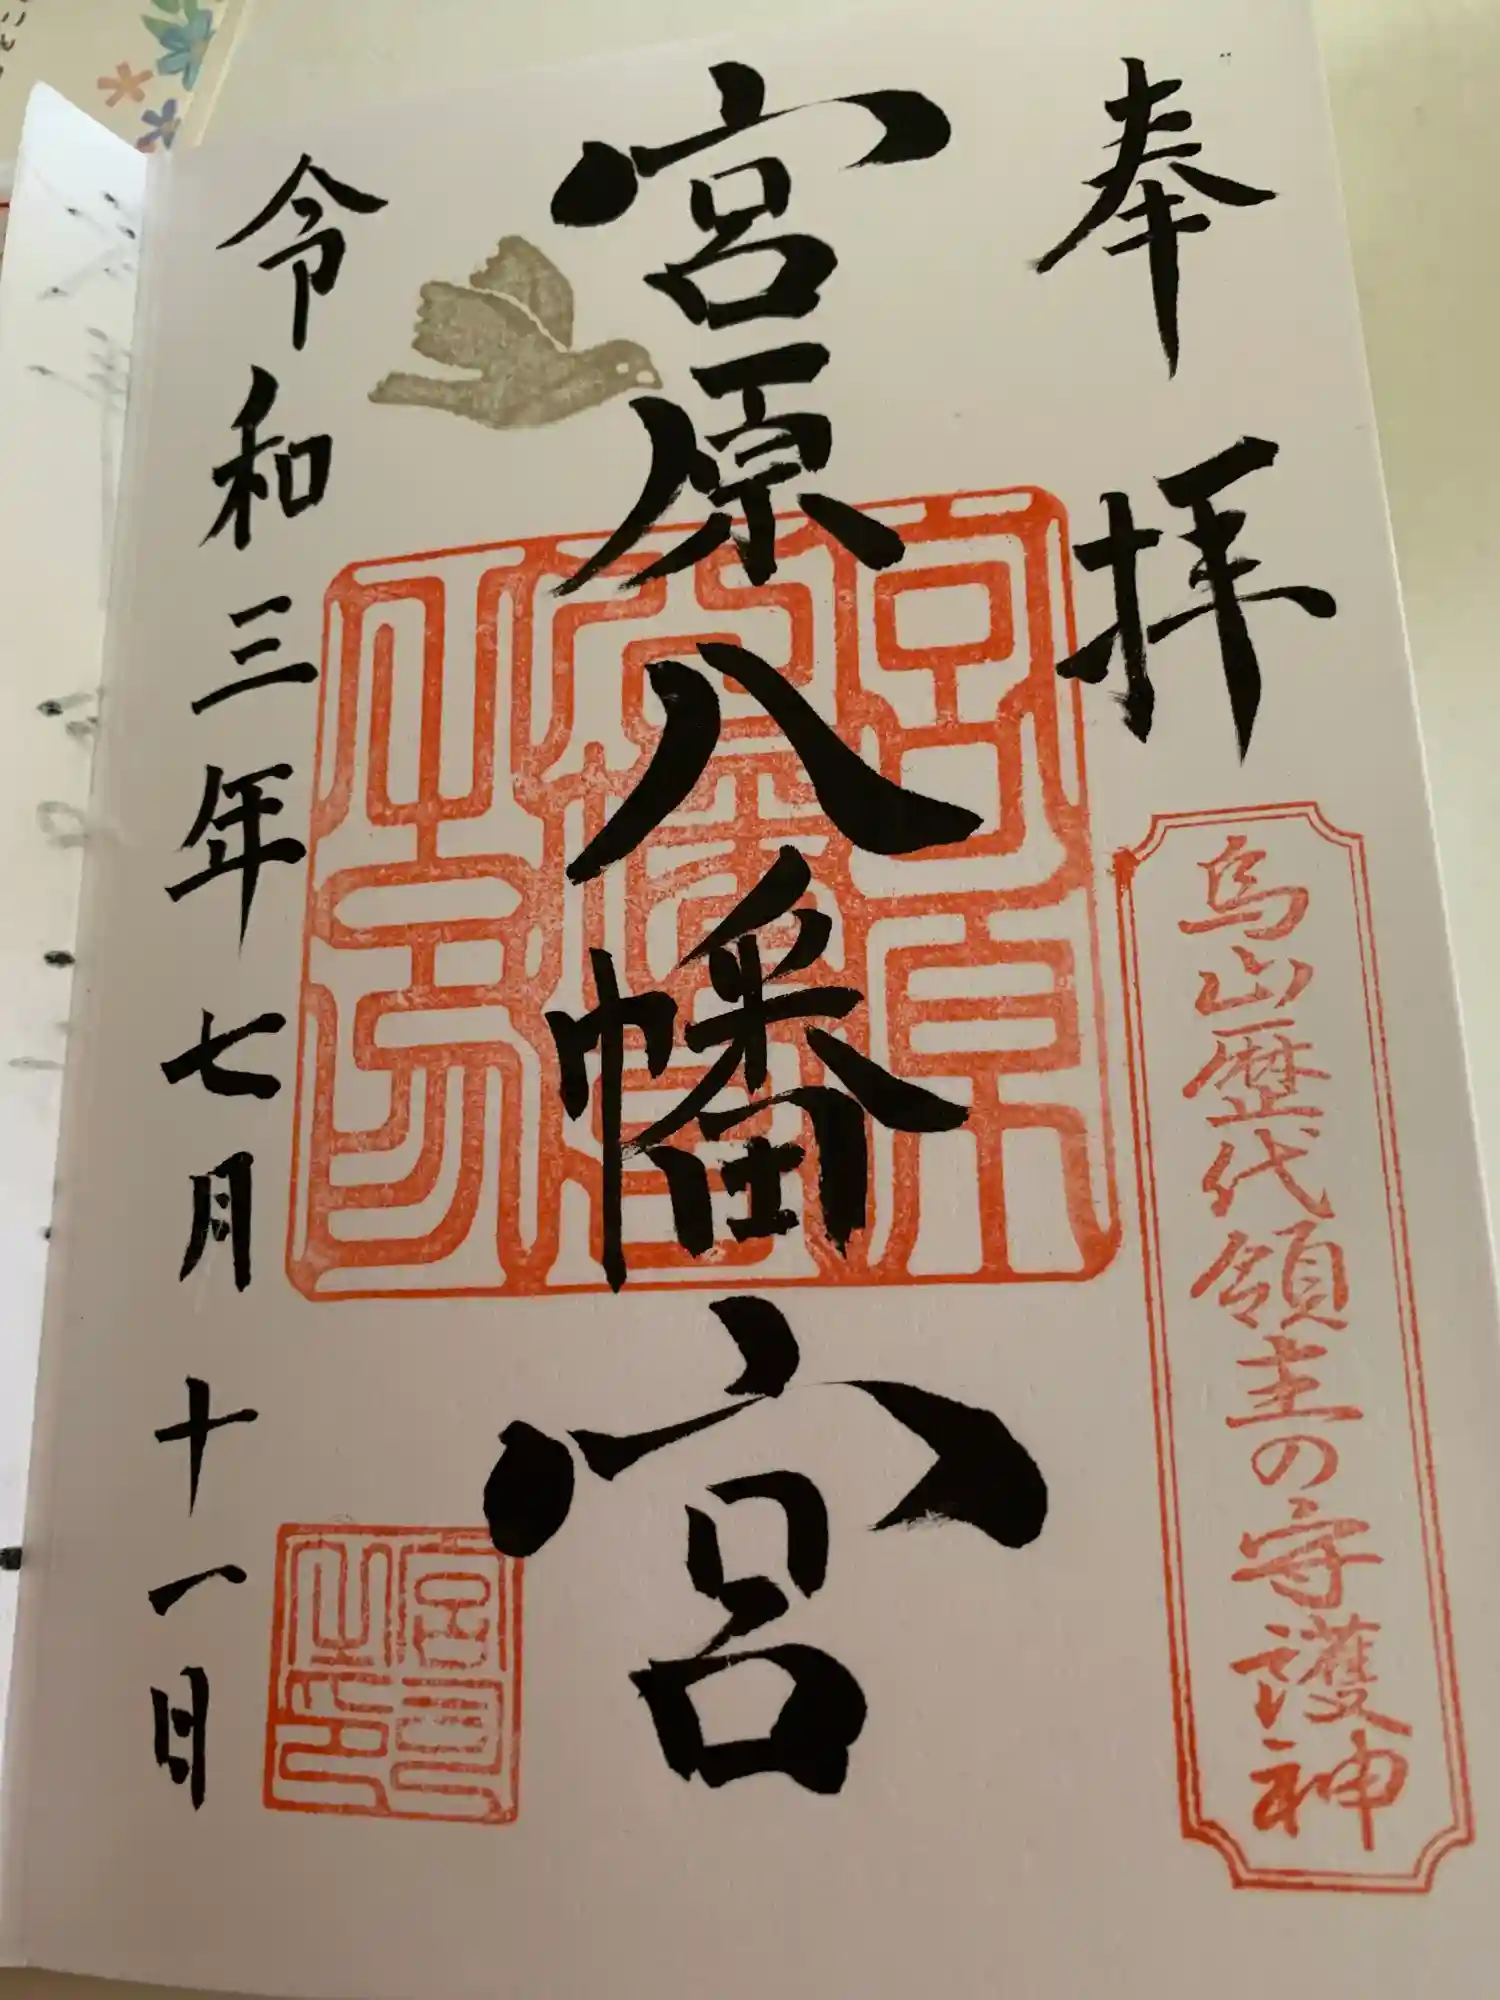 奉拝
烏山歴代領主の守護神
宮原八幡宮
宮原八幡宮之印
令和三年七月十一日
宮司之印